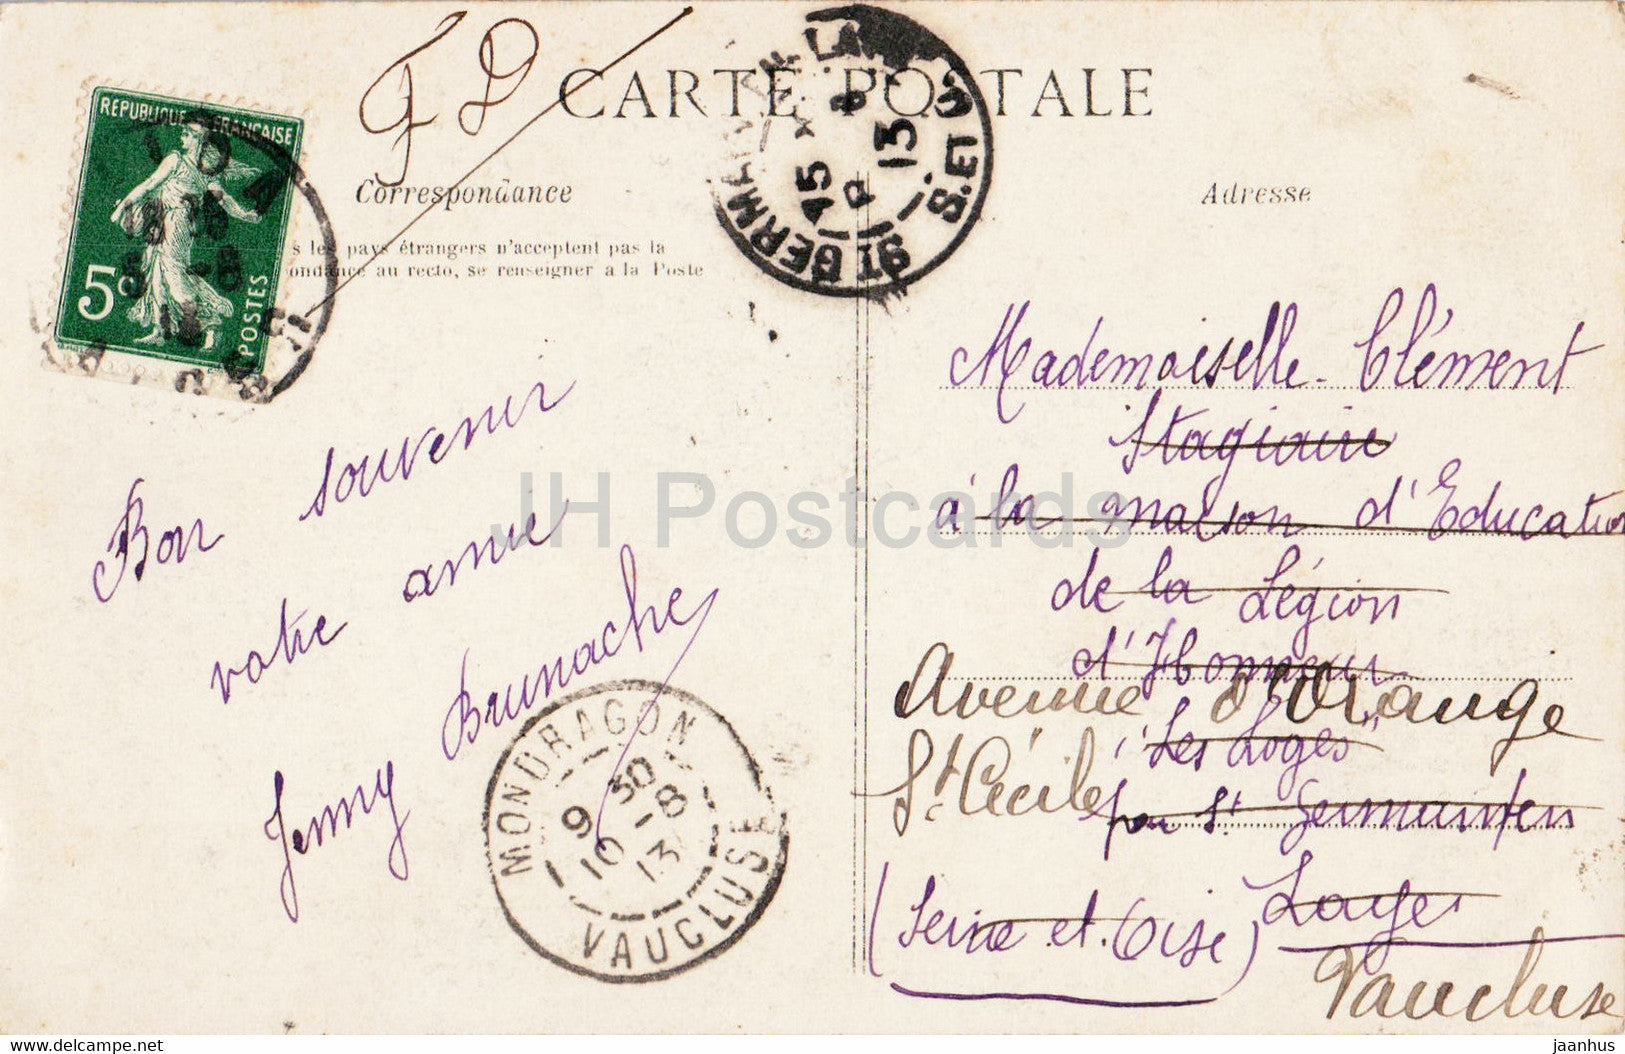 FD
CARTE POSTALE
Correspondance
Adresse
s les pays étrangers n'acceptent pas la
ondance au recto, se renseigner a la Poste
REPUBLIQUE FRANÇAISE
5c
POSTES
ST GERMAIN EN LAYE
S. ET O.
15
8
13
Bon souvenir
votre amie
Jenny Brunache
MONDRAGON
9 30
10 -8
13
VAUCLUSE
Mademoiselle Clément
Stagiaire
à la maison d'Education
de la Légion
d'Honneur
Avenue d'Orange
"Les Loges"
Ste Cécile
par St Germain en
Laye
(Seine et Oise)
Vaucluse
JH Postcards
delcampe.net
jaanhus